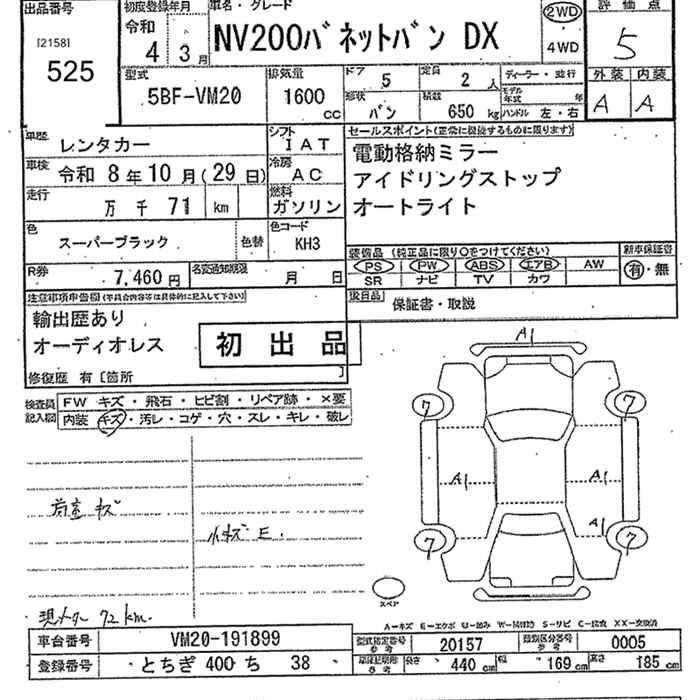 出品番号 初度登録年月 車名・グレード 2WD 評価点
[2158] 令和 4WD
525 4 3月 NV200バネットバン DX 5
型式 排気量 ドア 5 定員 2人 ディーラー・並行 外装 内装
5BF-VM20 1600cc 形状 バン 積載 650kg モデル年式 年 A A
ハンドル 左・右
車歴 レンタカー シフト IAT セールスポイント(正常に機能するものに限ります)
車検 令和 8年 10月(29日) 冷房 AC 電動格納ミラー
走行 万 千 71 km 燃料 ガソリン アイドリングストップ
オートライト
色 スーパーブラック 色替 色コード KH3
装備品(純正品に限り○をつけてください) 新車保証書
R券 7,460円 名変通知期限 月 日 PS PW ABS エアB AW 有・無
SR ナビ TV カワ
注意事項申告欄(不具合内容等は具体的に記入して下さい) 後日品 保証書・取説
輸出歴あり
オーディオレス 初出品
修復歴 有[箇所 ]
検査員記入欄 FW キズ・飛石・ヒビ割・リペア跡・×要
内装 キズ・汚レ・コゲ・穴・スレ・キレ・破レ
A1
7 7
A1 A1
A1
7 7
荷室 キズ
小キズ E.
スペア
現メーター 72km.
A−キズ E−エクボ U−凹み W−補修跡 S−サビ C−腐食 XX−交換済
車台番号 VM20-191899 型式指定番号 参考 20157 類別区分番号 参考 0005
登録番号 とちぎ 400 ち 38 車体証明形 参考 長さ 440cm 幅 169cm 高さ 185cm